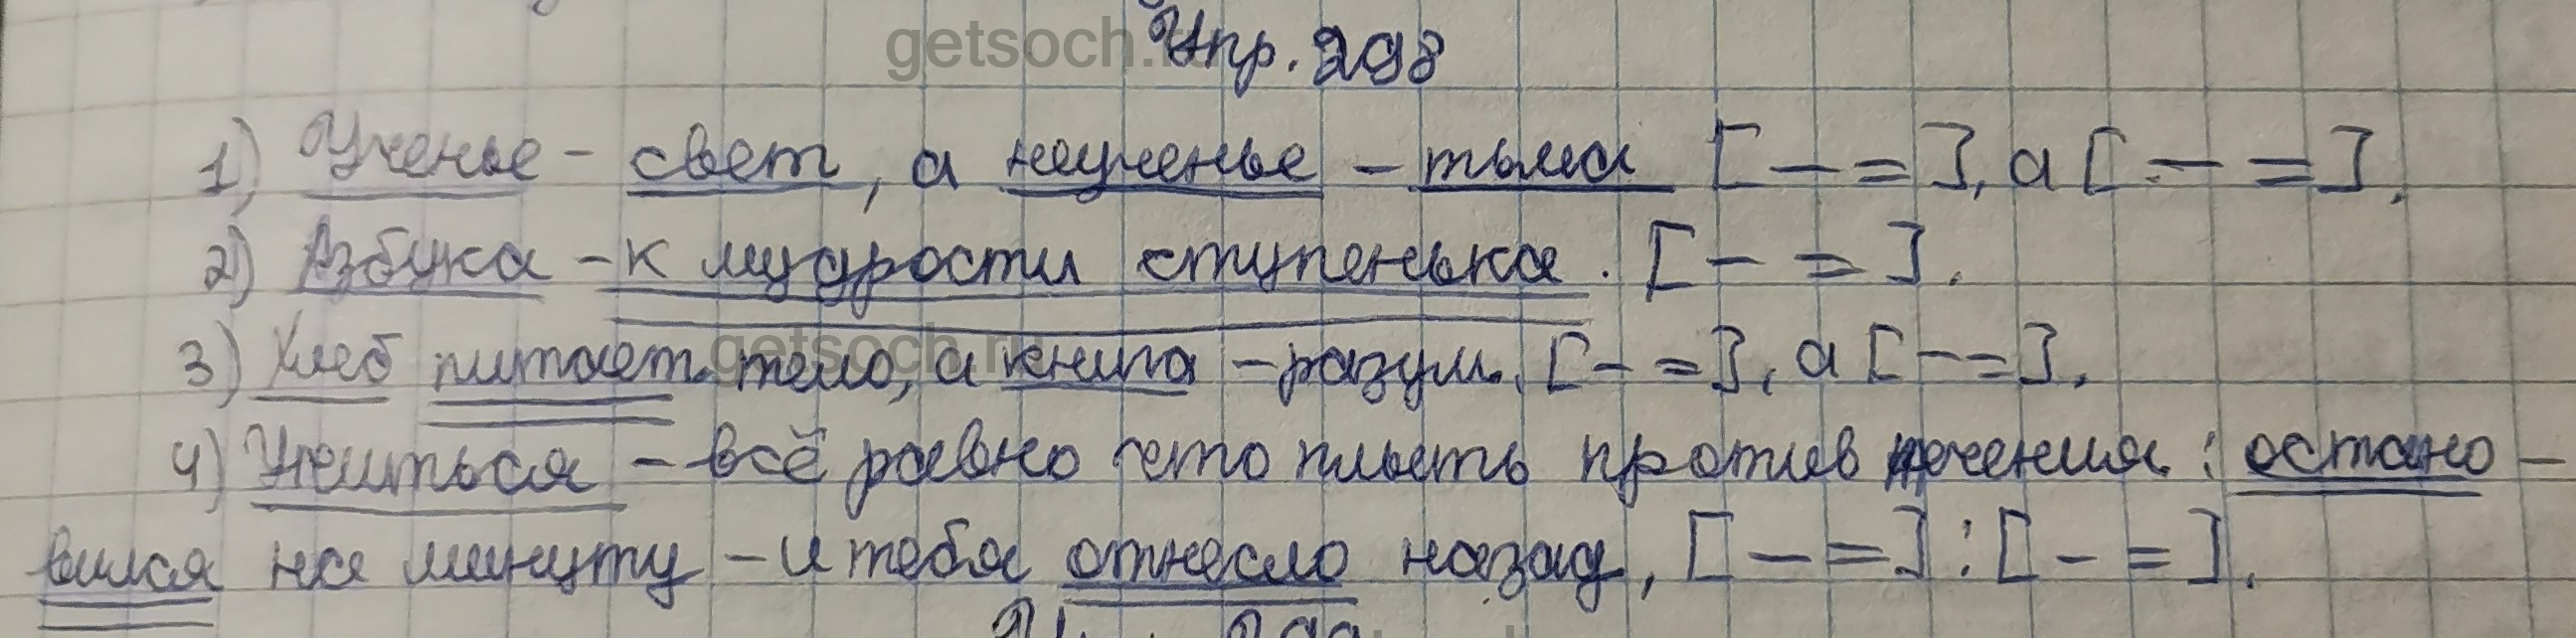 Упр. 298
1) Ученье - свет, а неученье - тьма [- =], а [- =].
2) Азбука - к мудрости ступенька. [- =].
3) Хлеб питает тело, а книга - разум. [- =], а [- =].
4) Учиться - всё равно что плыть против течения: остано-
вился на минуту - и тебя отнесло назад, [- =] : [- =].
getsoch.ru
getsoch.ru